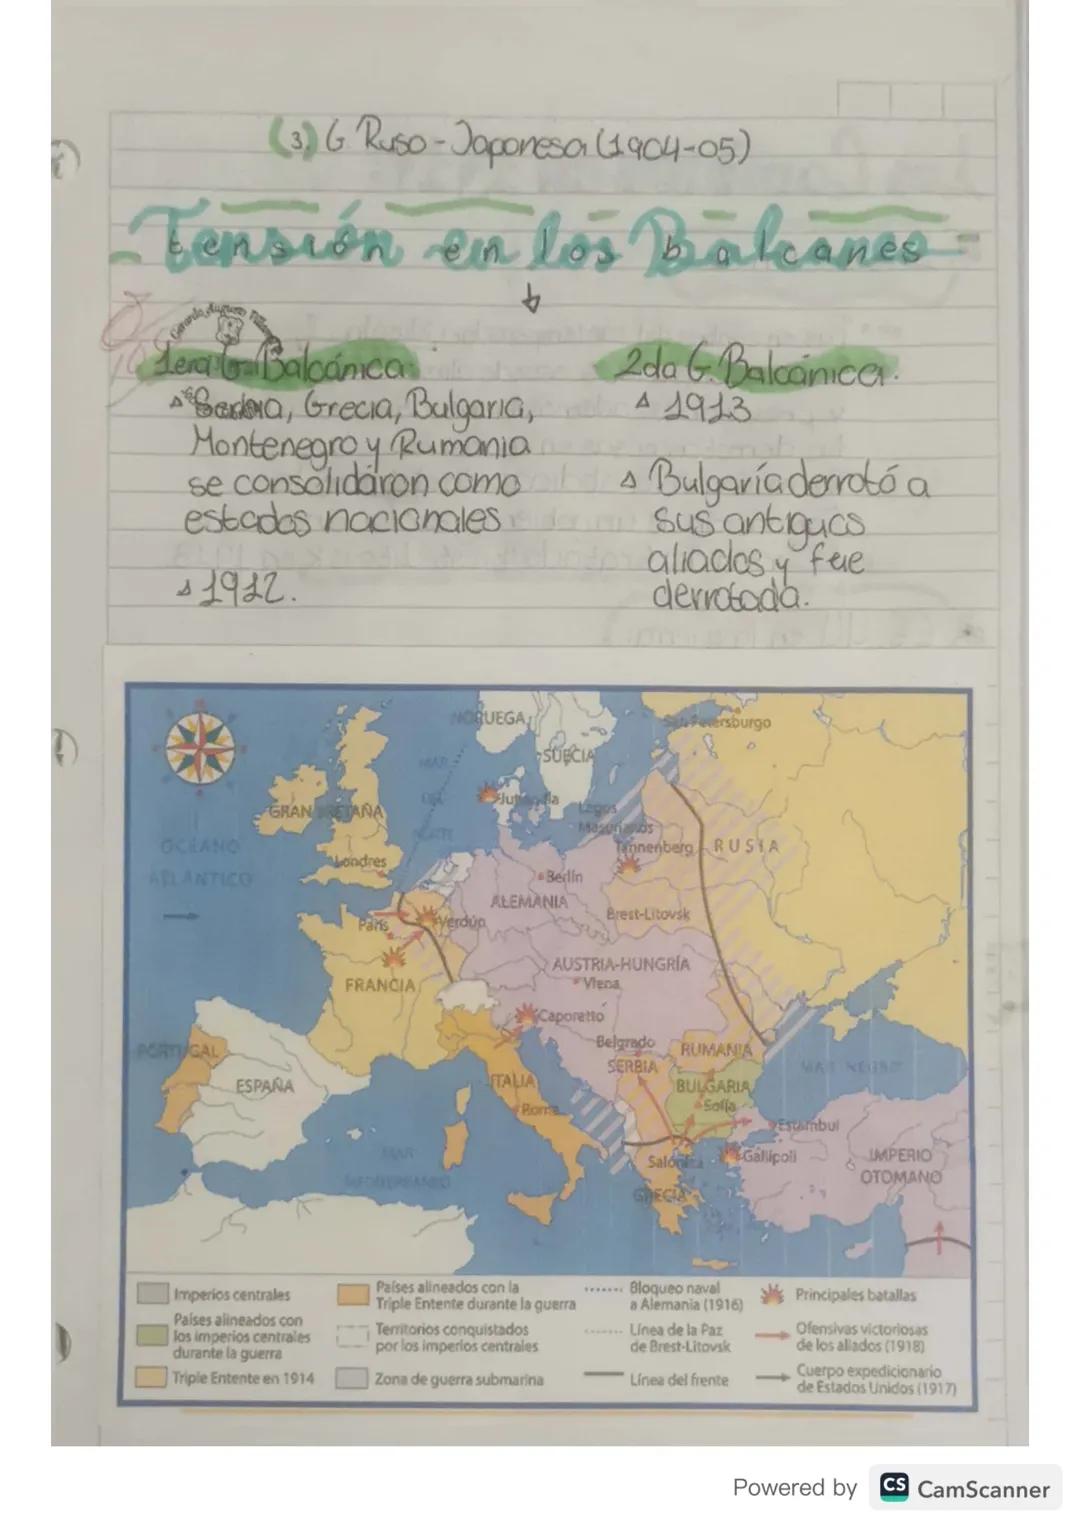 (3) G Ruso-Japonesa (1904-05)
Tensión en los Balcanes
1era G. Balcánica:
2da G. Balcánica.
Serbia, Grecia, Bulgaria,
Montenegro y Rumania
se consolidáron como
estados nacionales
1912.
1913
Bulgaría derrotó a
sus antiguos
aliados y fue
derrotada.
NORUEGA
San Petersburgo
SUECIA
MAR
DEL
NORTE
Jutlandia
GRAN BRETAÑA
Lagos
Masurianos
Tannenberg
RUSIA
OCÉANO
ATLÁNTICO
Londres
Berlín
ALEMANIA
Brest-Litovsk
París
Verdún
AUSTRIA-HUNGRÍA
Viena
FRANCIA
Caporetto
Belgrado
RUMANIA
SERBIA
PORTUGAL
ESPAÑA
ITALIA
BULGARIA
Sofía
MAR NEGRO
Roma
Estambul
MAR
MEDITERRÁNEO
Salónica
Gallípoli
IMPERIO
OTOMANO
GRECIA
Imperios centrales
Países alineados con
los imperios centrales
durante la guerra
Triple Entente en 1914
Países alineados con la
Triple Entente durante la guerra
Territorios conquistados
por los imperios centrales
Zona de guerra submarina
Bloqueo naval
a Alemania (1916)
Línea de la Paz
de Brest-Litovsk
Línea del frente
Principales batallas
Ofensivas victoriosas
de los aliados (1918)
Cuerpo expedicionario
de Estados Unidos (1917)
Powered by CS CamScanner